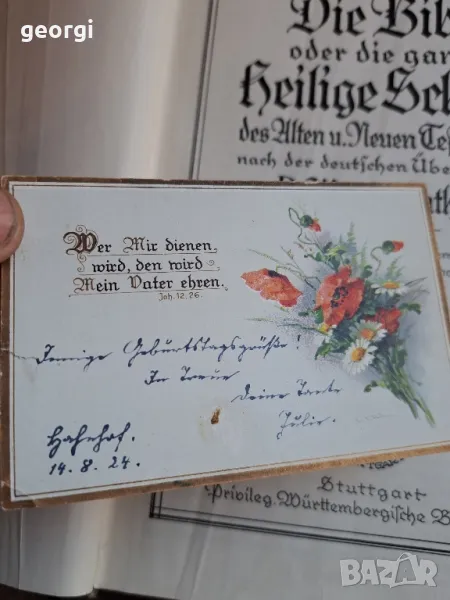 georgi
Die Bib
oder die gan
Heilige Sch
des Alten u. Neuen Te
nach der deutschen Übe
Wer Mir dienen
wird, den wird
Mein Vater ehren.
Joh. 12. 26.
Geburtstagsgrüße!
In Treue
Deine Tante
Julie.
Hahnhof.
14. 8. 24.
Stuttgart
Privileg. Württembergische B
BAZAR